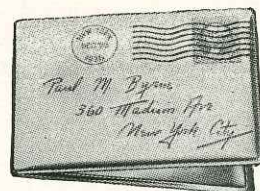 NEW YORK
Paul M. Byrne
360 Madison Ave
New York City